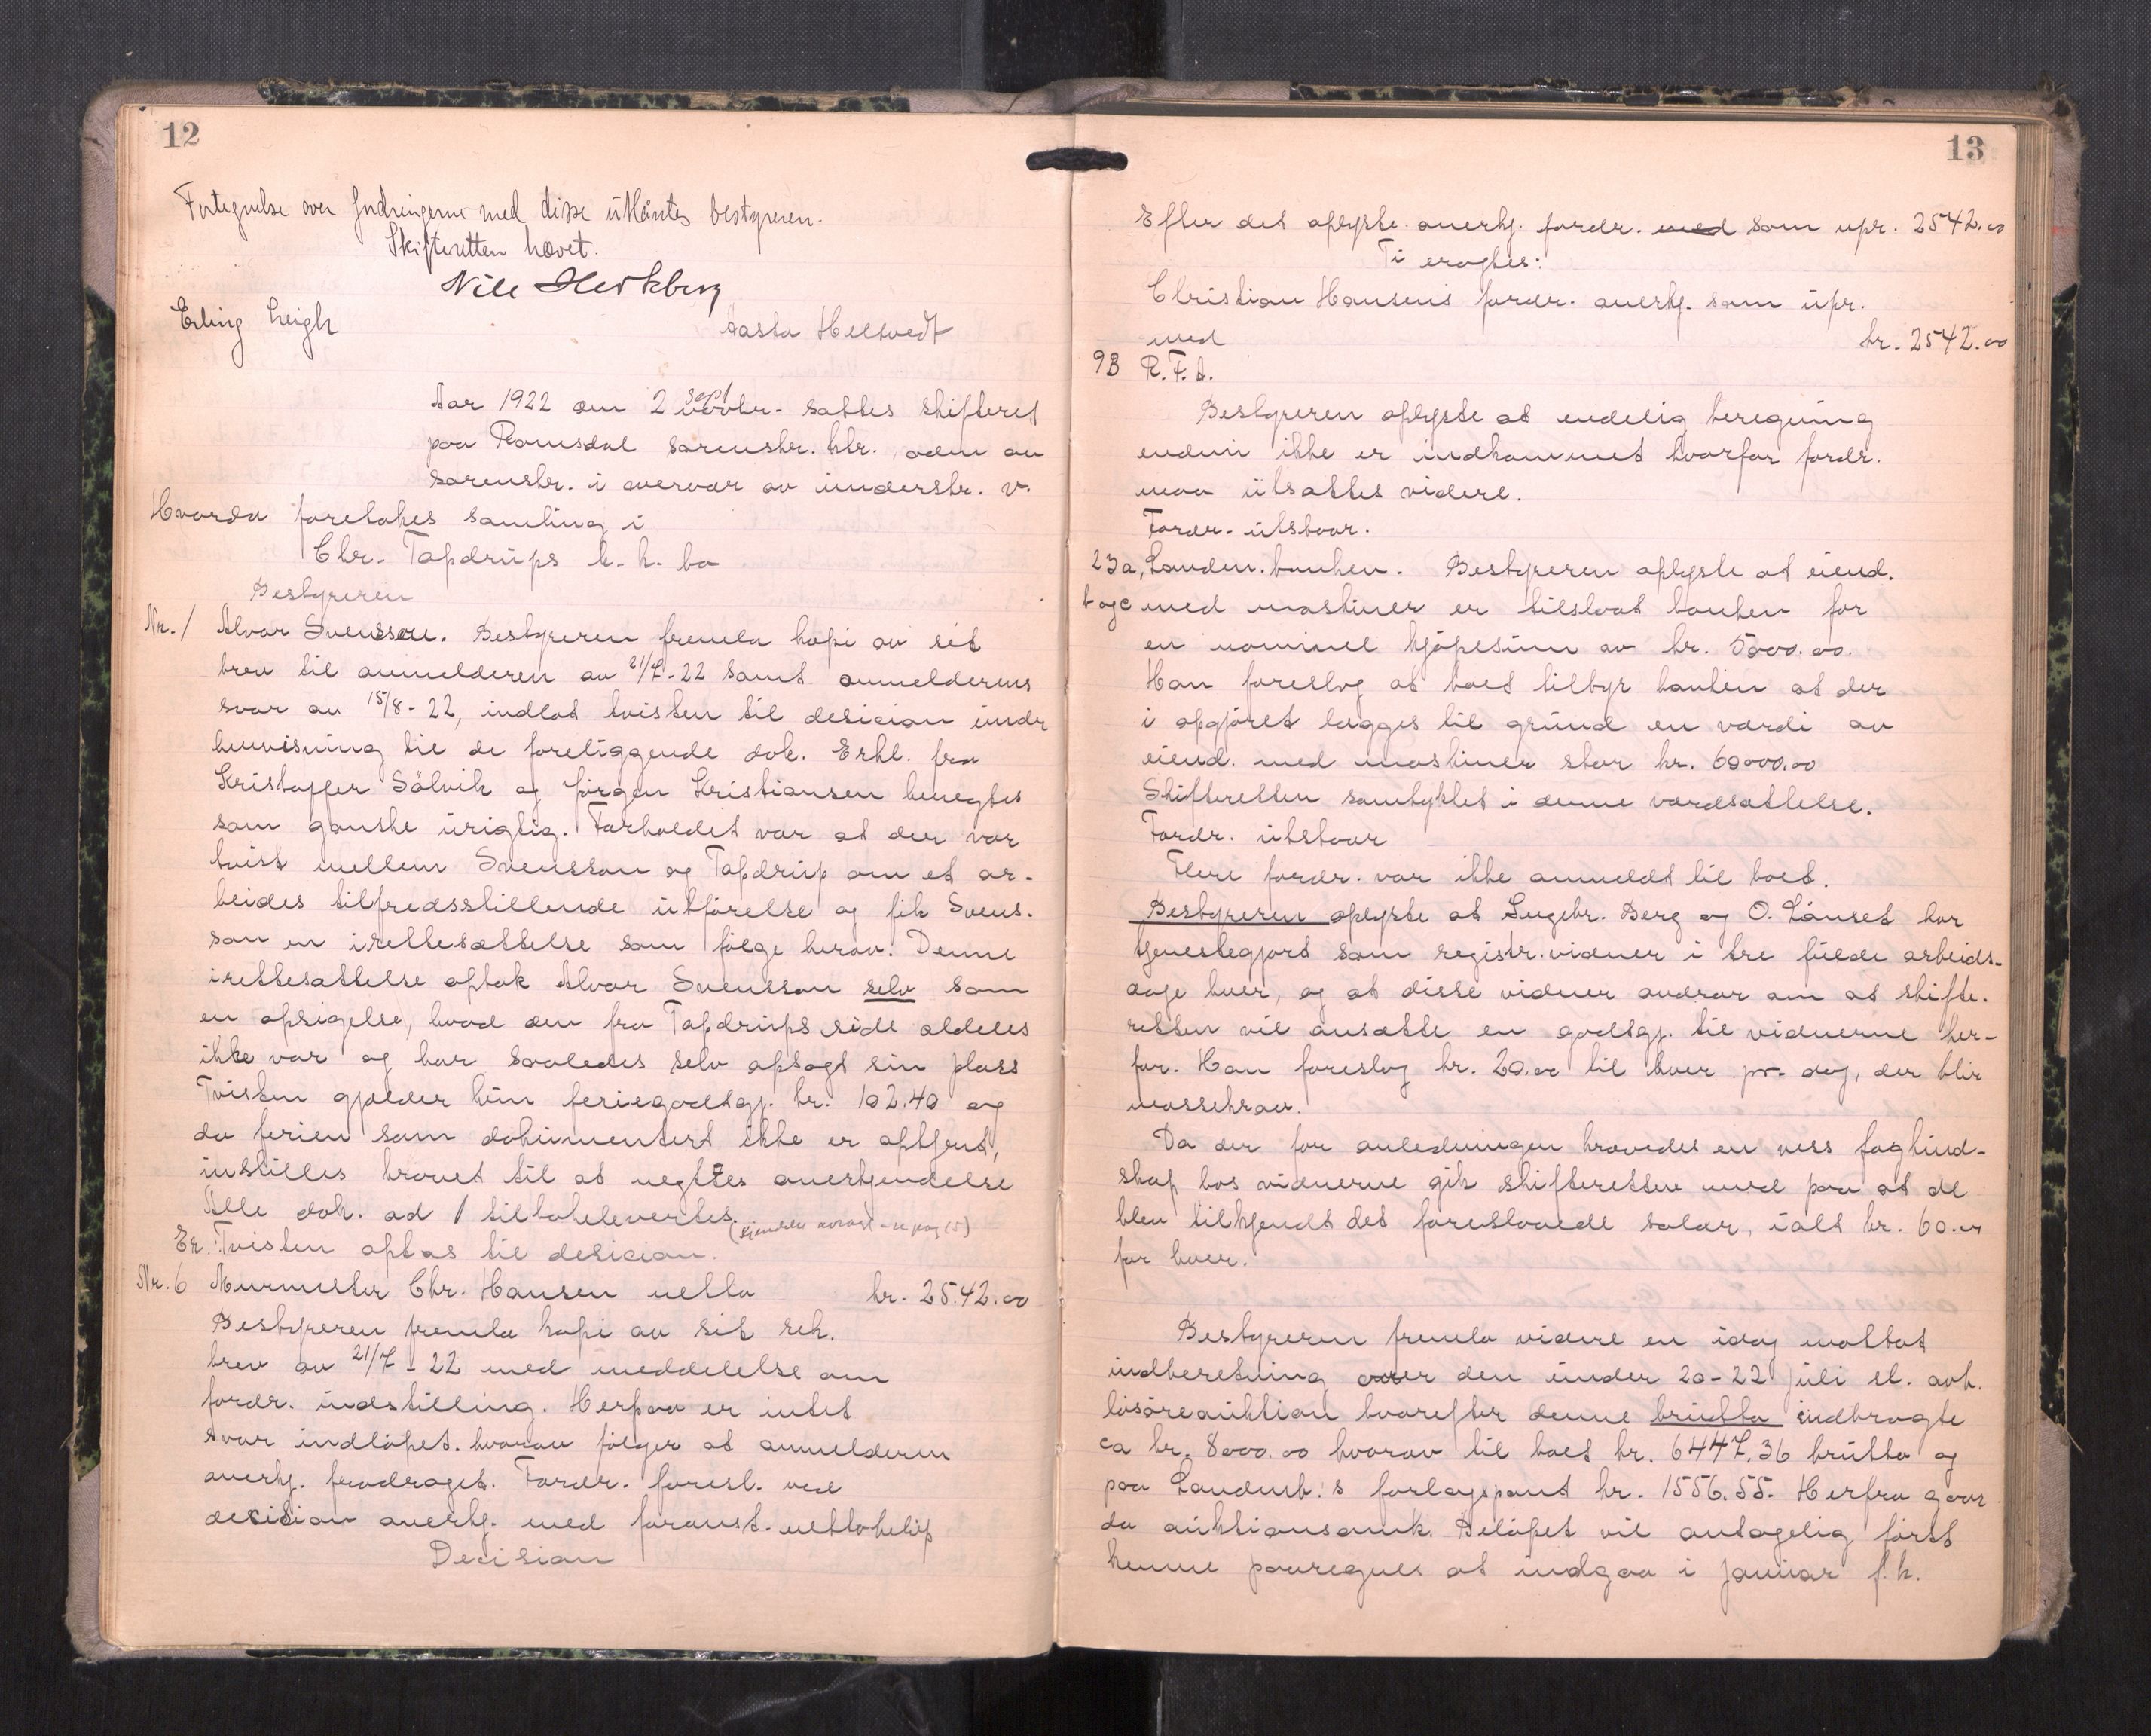 12
Fortegnelse over fordringerne med disse utlåntes bestyreren.
Skifteretten hævet.
Nils Hertzberg
Erling Leigh
Aasta Heltvedt
Aar 1922 den 2 sept novbr. sattes skifteret
paa Romsdal sorenskr. ktr. adm av
sorenskr. i overvær av underskr. v.
Hvorda foretokes samling i
Chr. Tapdrups k.k. bo
Bestyreren
Nr. 1 Alvar Svensson. Bestyreren fremla kopi av sit
brev til anmelderen av 21/7-22 samt anmelderens
svar av 15/8-22, indlot tvisten til desicion under
henvisning til de foreliggende dok. Erkl. fra
Kristoffer Sölvik og Jörgen Kristiansen benegtes
som ganske urigtig. Forholdet var at der var
tvist mellem Svensson og Tapdrup om et ar-
beides tilfredsstillende utförelse og fik Svens-
son en irettesættelse som fölge herav. Denne
irettesættelse optok Alvar Svensson selv som
en opsigelse, hvad den fra Tapdrups side aldeles
ikke var og har saaledes selv opsagt sin plass
Tvisten gjælder kun feriegodtgj. kr. 102.40 og
da ferien som dokumentert ikke er optjent,
instilles kravet til at negttes anerkjendelse
Alle dok. ad 1 tilbakelevertes.
Er. Tvisten optas til desicion.
Nr. 6 Murmester Chr. Hansen netto kr. 2542.00
Bestyreren fremla kopi av sit rek.
brev av 21/7-22 med meddelelse om
fordr. indstilling. Herpaa er intet
svar indlöpet. hvorav fölger at anmelderen
anerkj. fradraget. Fordr. foresl. ved
decision anerkj. med foranst. nettobelöp
Decision
13
Efter det oplyste anerkj. fordr. med som upr. 2542.00
Ti eragtes:
Christian Hansens fordr. anerkj. som upr.
med kr. 2542.00
9B R.F.A.
Bestyreren oplyste at endelig beregning
endnu ikke er indkommet hvorfor fordr.
maa utsættes videre.
Fordr. utstaar.
23a, Landm.banken. Bestyreren oplyste at eiend.
b og c med maskiner er tilslaat banken for
en nominel kjöpesum av kr. 5000.00.
Han foreslog at boet tilbyr banken at der
i opgjöret lægges til grund en værdi av
eiend. med maskiner stor kr. 60000.00
Skifteretten samtykket i denne værdsættelse.
Fordr. utstaar
Flere fordr. var ikke anmeldt til boet.
Bestyreren oplyste at Ingebr. Berg og O. Lånset har
tjenestegjort som registr.vidner i tre fulde arbeids-
dage hver, og at disse vidner andrar om at skifte-
retten vil ansætte en godtgj. til vidnerne her-
for. Han foreslog kr. 20.00 til hver pr. dag, der blir
massekrav.
Da der for anledningen krævedes en viss fagkund-
skap hos vidnerne gik skifteretten med paa at de
blev tilkjendt det foreslaaede salær, ialt kr. 60.00
for hver.
Bestyreren fremla videre en idag mottat
indberetning over den under 20-22 juli st. avh.
lösöreauktion hvorefter denne brutto indbragte
ca kr. 8000.00 hvorav til boet kr. 6447.36 brutto og
paa Landmb.'s forlagspant kr. 1556.55. Herfra gaar
da auktionsomk. Belöpet vil antagelig först
kunne paaregnes at indgaa i januar f.k.